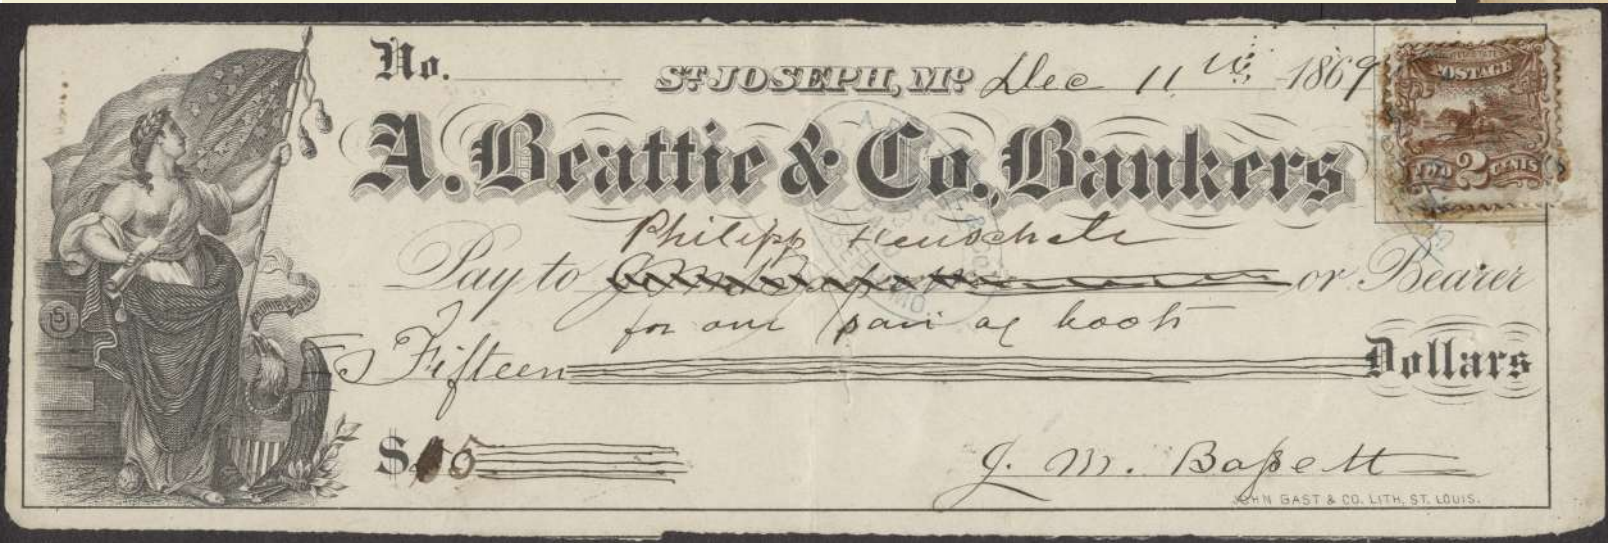 No.
ST JOSEPH, MO Dec 11th 1869
POSTAGE
2 CENTS
A. Beattie & Co. Bankers
Philipp
Pay to or Bearer
for one pair of boots
Fifteen Dollars
$15
J. M. Bassett
JOHN GAST & CO. LITH, ST. LOUIS.